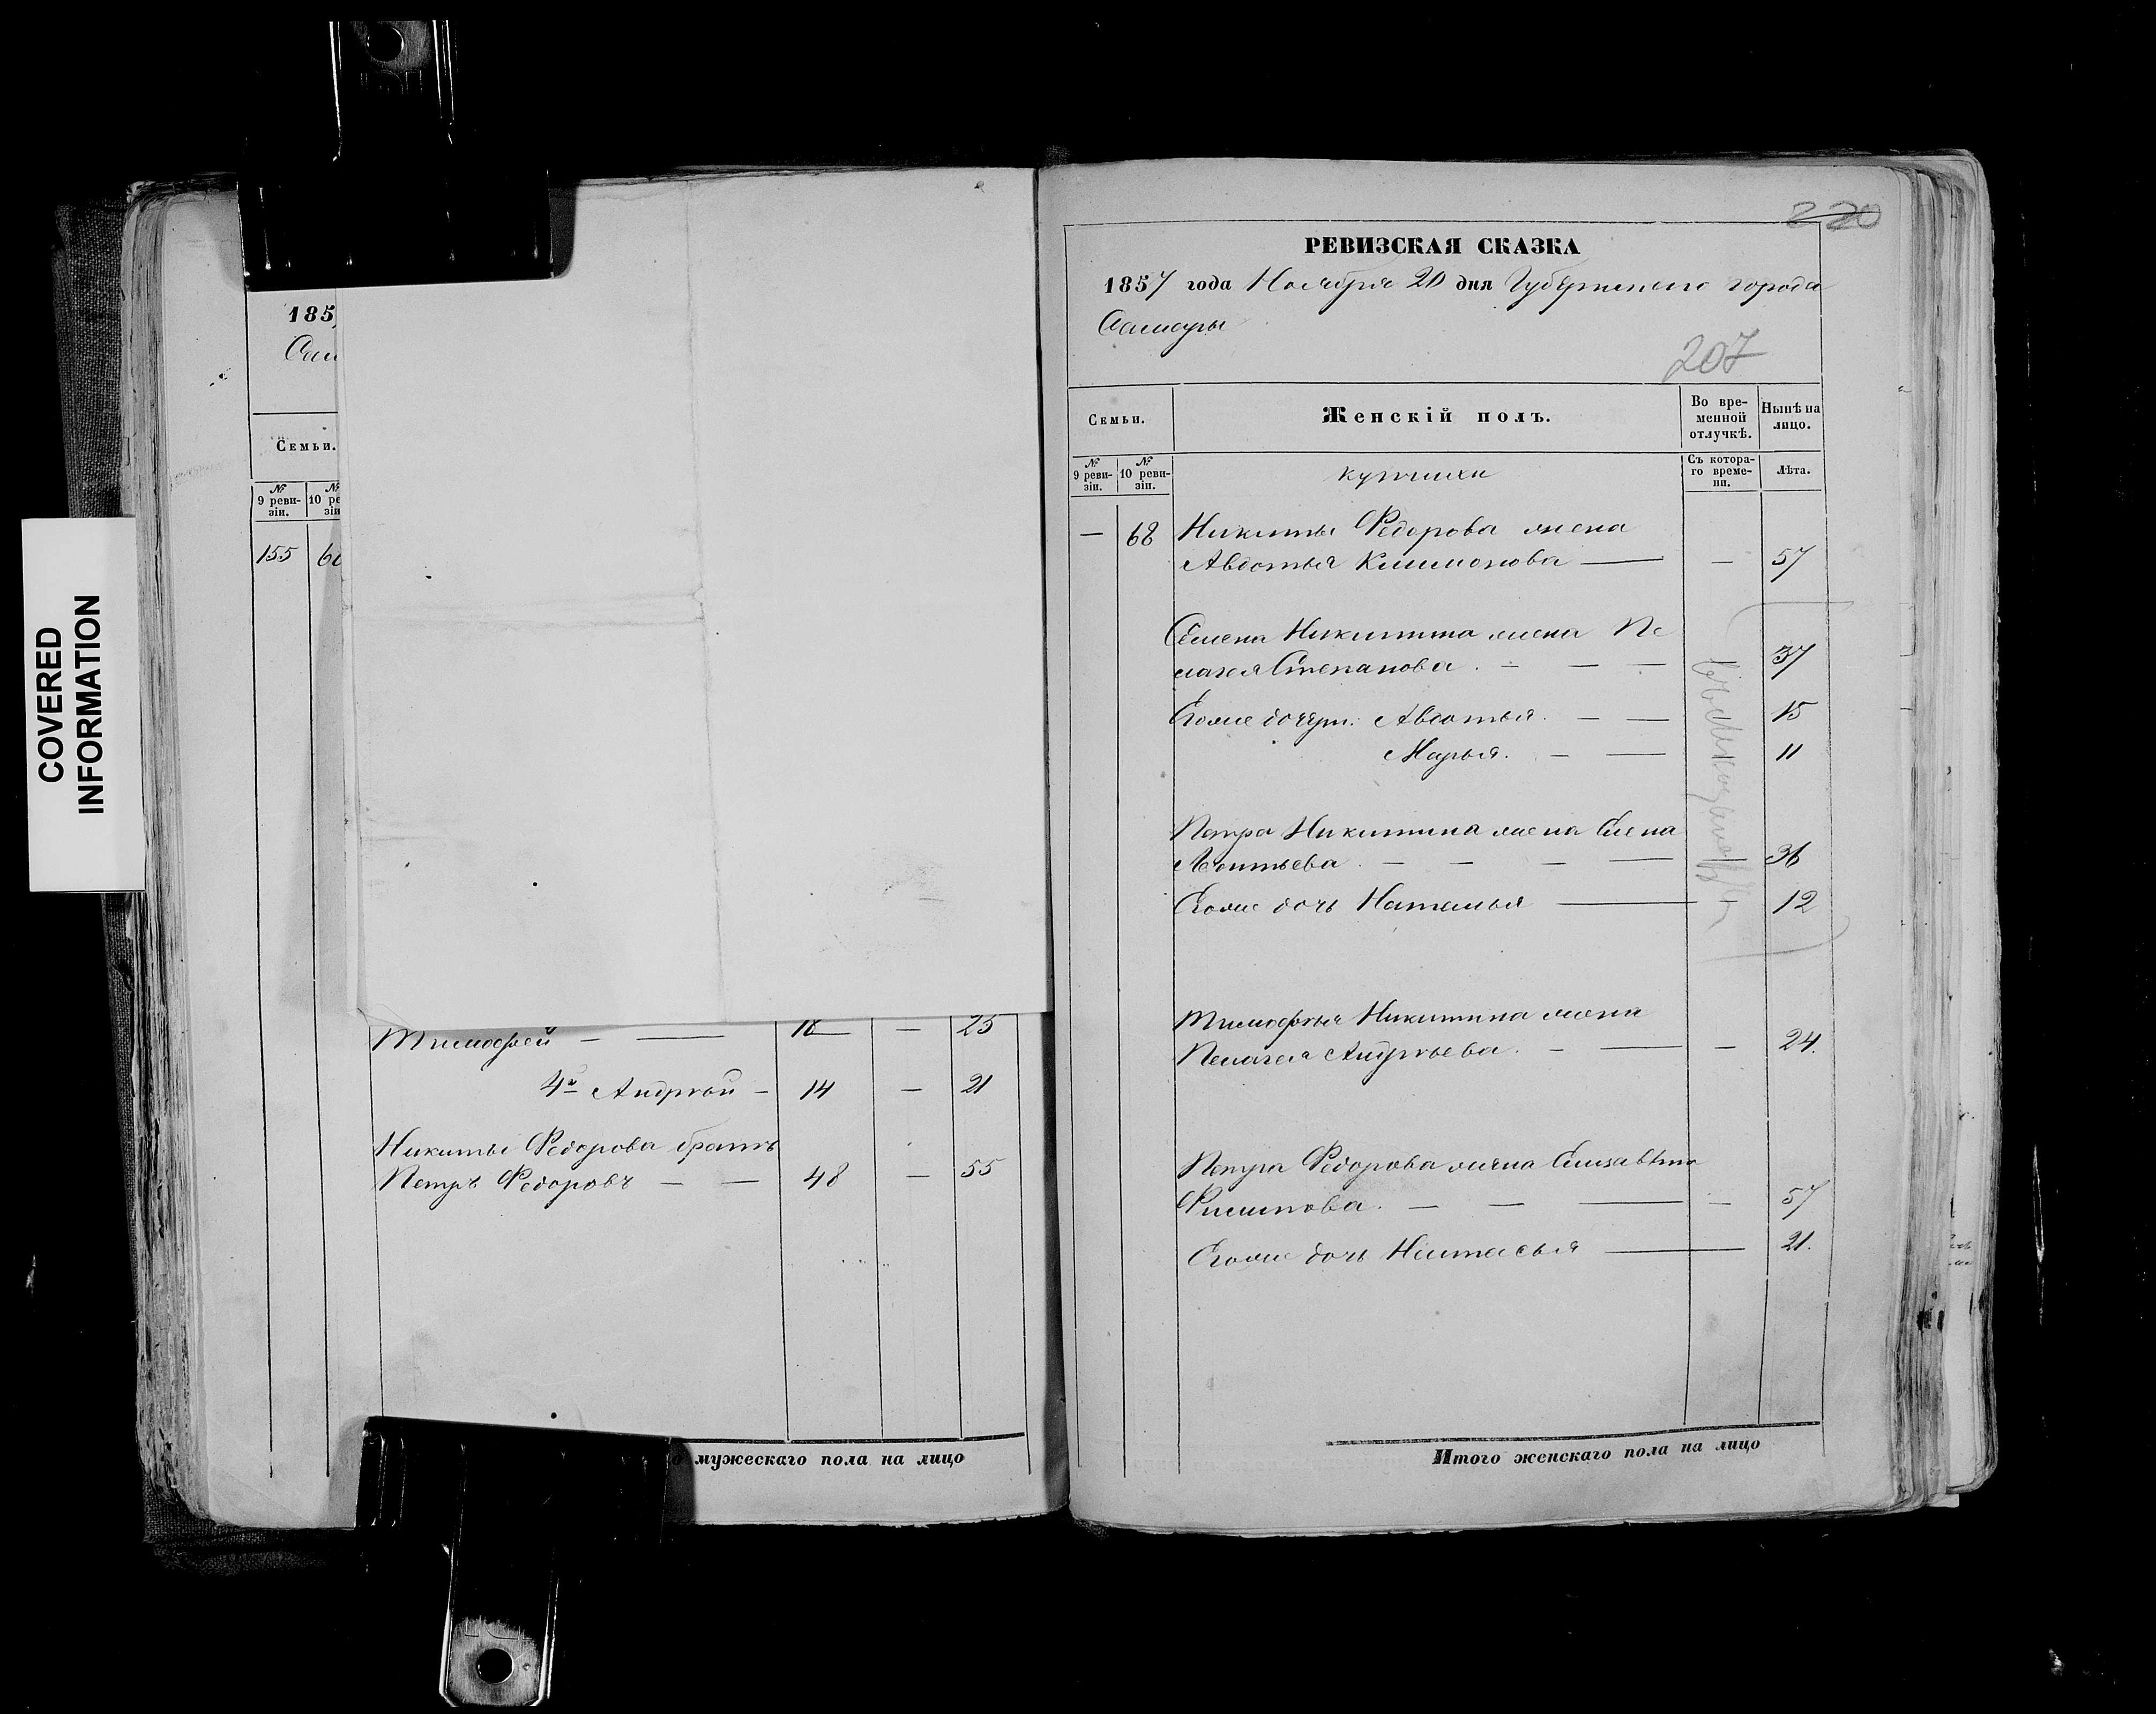 COVERED
INFORMATION
185
Сам
Семьи.
№ 9 ревизіи.
155
Тимофей — — 18 — 25
4й Андрей — 14 — 21
Никиты Федорова братъ
Петръ Федоровъ — — 48 — 55
мужескаго пола на лицо
220
РЕВИЗСКАЯ СКАЗКА
1857 года Ноября 20 дня Губернскаго города
Самары
207
Семьи.
Женскій полъ.
Во временной отлучкѣ.
Нынѣ на лицо.
№ 9 ревизіи.
№ 10 ревизіи.
купчихи
Съ котораго времени.
Лѣта.
— 68 Никиты Федорова жена
Авдотья — — 57
Семена Никитина жена Пе
лагея Степанова. — — — 37
Его же дочери: Авдотья. — — 15
Марья. — — 11
Петра Никитина жена Елена
Леонтьева. — — — — 36
Его же дочь Наталья — 12
Тимофея Никитина жена
Пелагея Андреева. — — — 24.
Петра Федорова жена Елизавѣта
Филипова. — — — — 57
Его же дочь Настасья — 21.
Итого женскаго пола на лицо